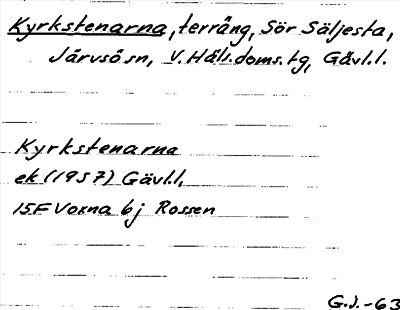 Kyrkstenarna, terräng, Sör Säljesta,
Järvsö sn, V. Häls. doms. tg, Gävl. l.
Kyrkstenarna
ek (1957) Gävl. l,
15F Voxna bj Rossen
G.J. -63